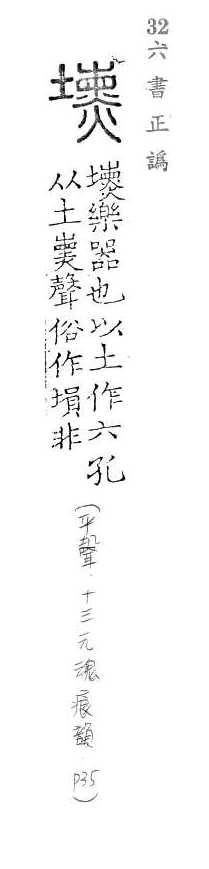 32 六書正譌
壎
壎樂器也以土作六孔
从土熏聲俗作塤非
(平聲．十三元魂痕韻．p35)